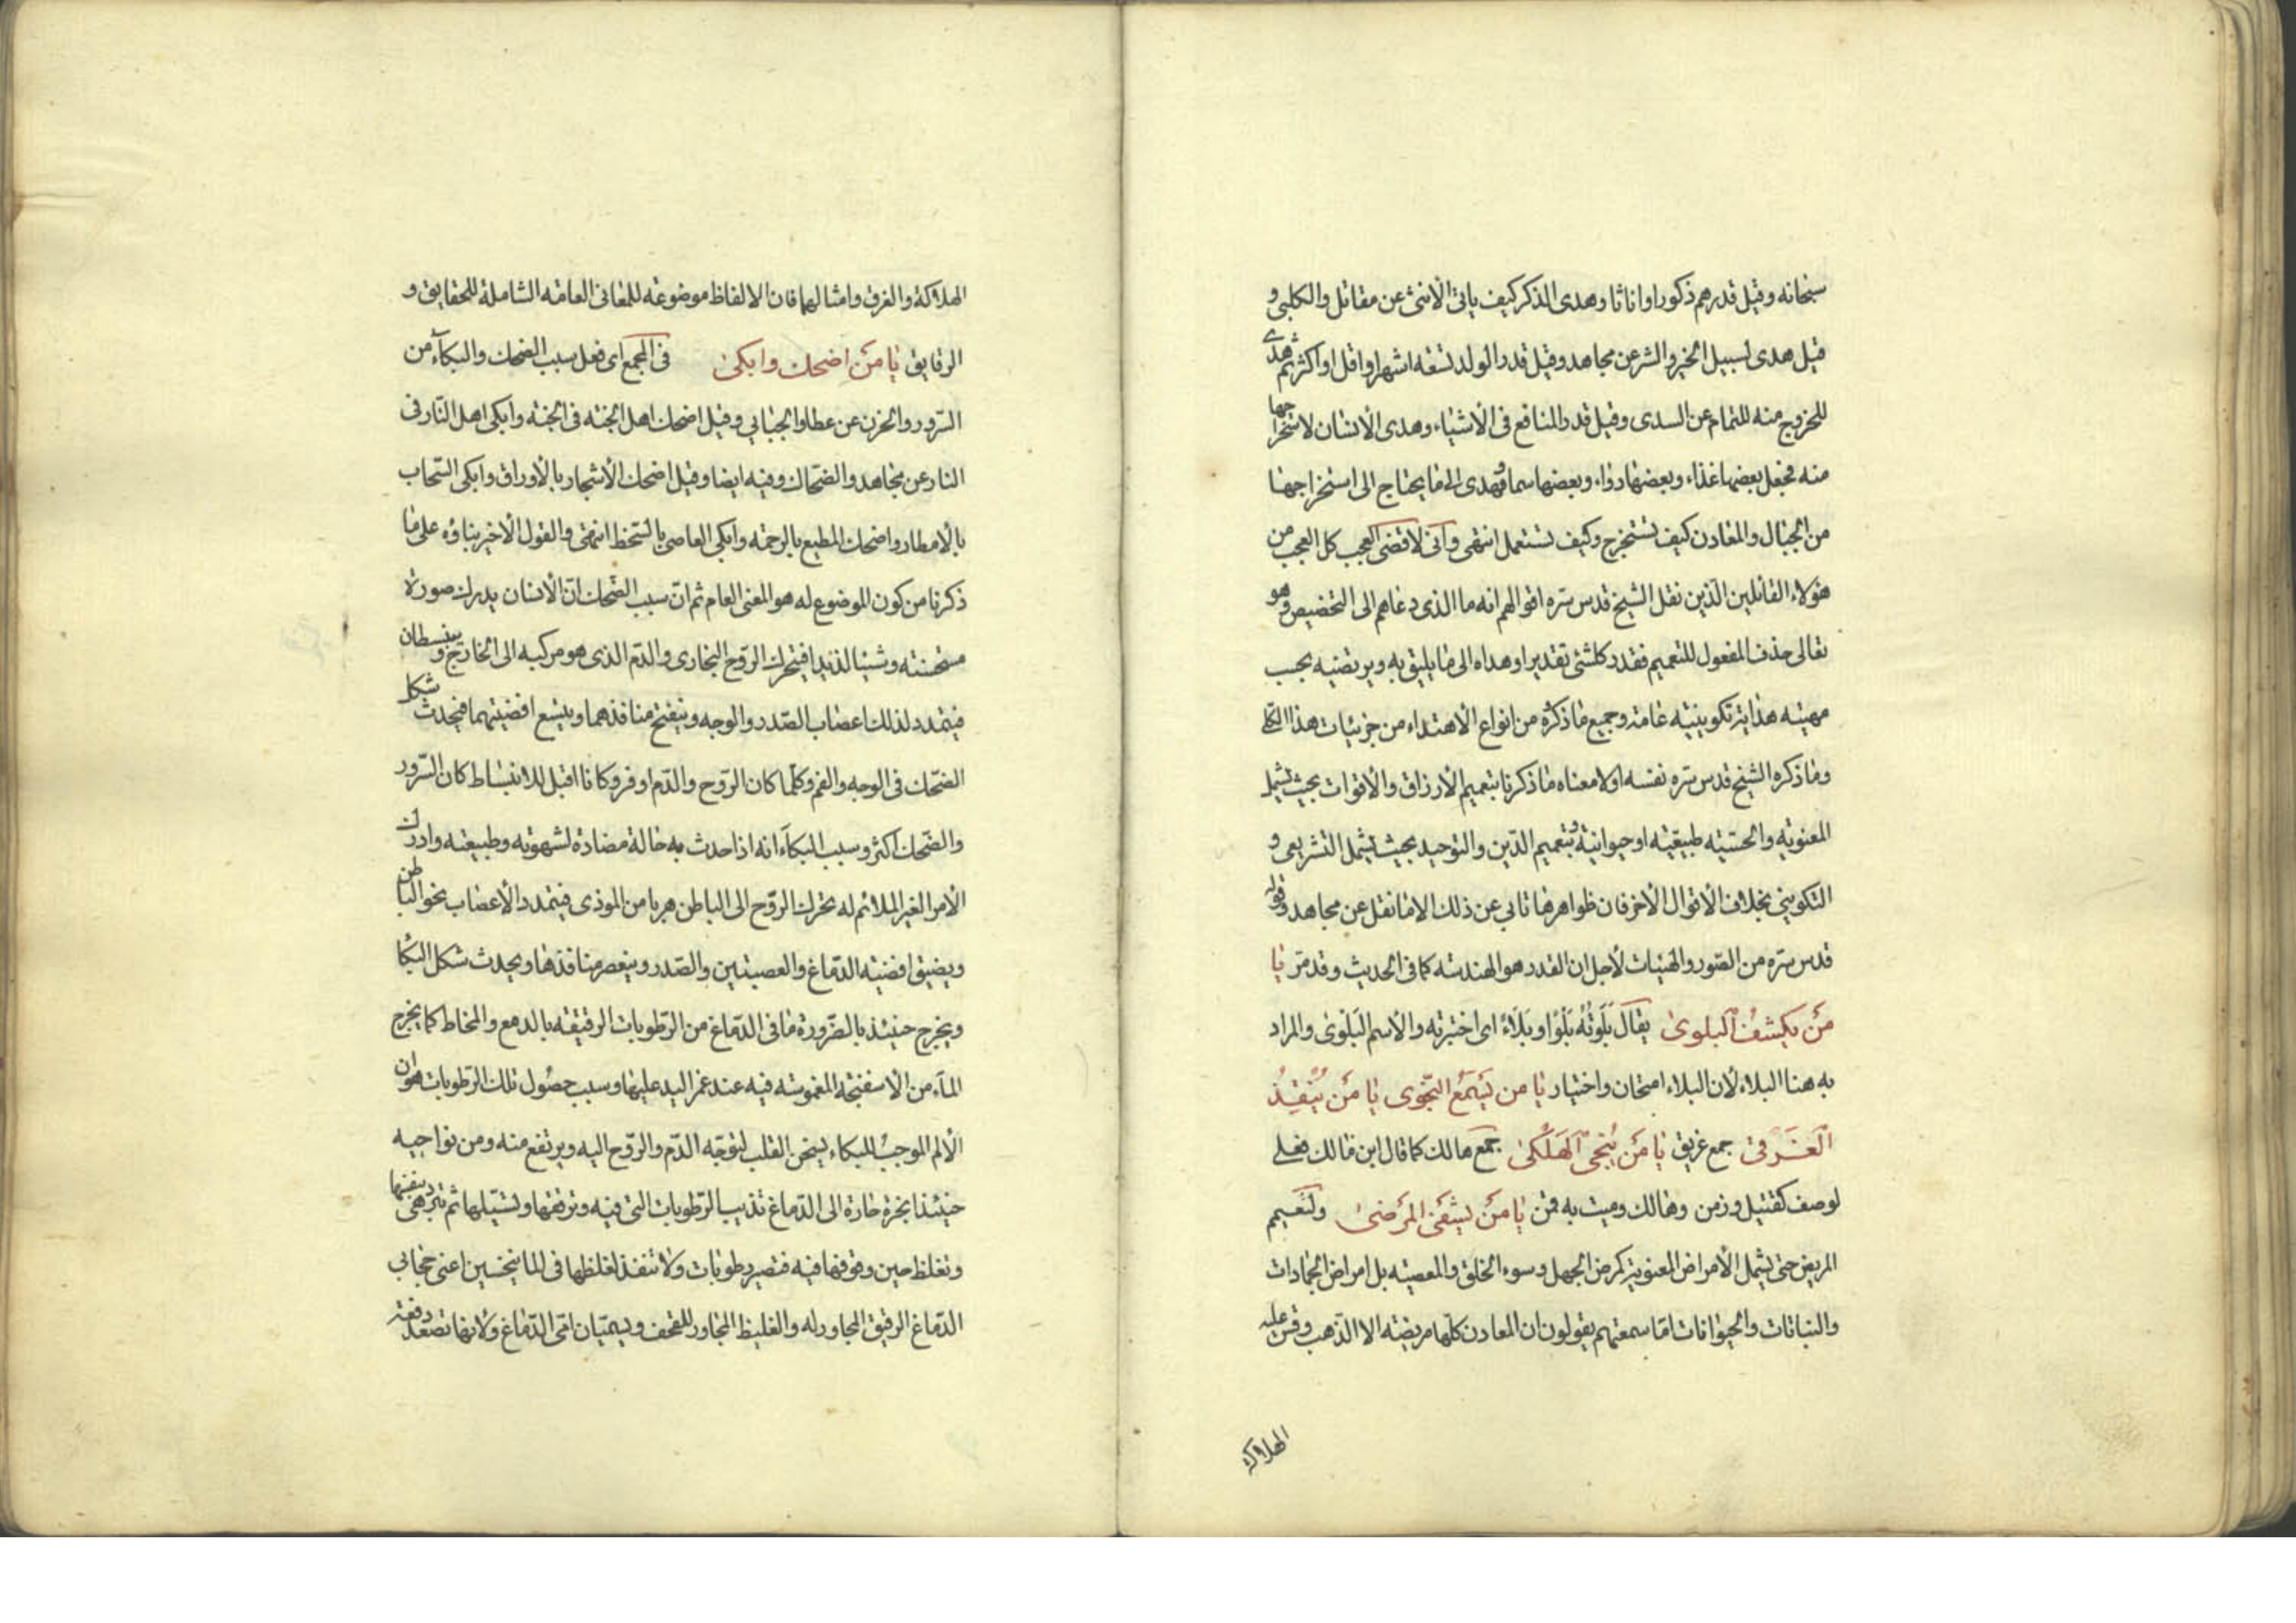 سبحانه وقيل قدرهم ذكورا واناثا وهدى الذكر كيف ياتى الأنثى عن مقاتل والكلبى و
قيل هدى لسبيل الخير والشر عن مجاهد وقيل قدر الولد تسعة اشهر او اقل او اكثر ثم هدى
للخروج منه للتمام عن السدى وقيل قدر المنافع فى الأشياء وهدى الأنسان لاستخراجها
منه فجعل بعضها غذاء وبعضها دواء وبعضها سما وهدى الى ما يحتاج الى استخراجها
من الجبال والمعادن كيف تستخرج وكيف تستعمل انتهى وانى لاقضى العجب كل العجب من
هؤلاء القائلين الذين نقل الشيخ قدس سره اقوالهم انه ما الذى دعاهم الى التخصيص وهو
تعالى حذف المفعول للتعميم فقدر كلشئ تقديرا وهداه الى ما يليق به ويرتضيه بحسب
مهيته هداية تكوينية عامة وجميع ما ذكره من انواع الاهتداء من جزئيات هذا الكلى
وما ذكره الشيخ قدس سره نفسه اولا معناه ما ذكرنا بتعميم الأرزاق والأقوات بحيث يشمل
المعنوية والحسية طبيعية او حيوانية وبتعميم الدين والتوحيد بحيث يشمل التشريعى و
التكوينى بخلاف الأقوال الأخر فان ظواهرها تابى عن ذلك الا ما نقل عن مجاهد وقوله
قدس سره من الصور والهيئات لأجل ان القدر هو الهندسة كما فى الحديث وقد مر يا
مَن يكشف البلوى يقال بَلَوتُه بَلْوا وبَلاءً اى اختبرته والأسم البَلْوى والمراد
به هنا البلاء لأن البلاء امتحان واختبار يا من يَسمَعُ النجوى يا مَن يُنقِذُ
الغَرقى جمع غريق يا مَن يُنجى الهَلكى جمع هالك كما قال ابن مالك فعلى
لوصف كقتيل وزمن وهالك وميت به قمن يا مَن يشفى المرضى ولنعمم
المريض حتى يشمل الأمراض المعنوية كمرض الجهل وسوء الخلق والمعصية بل امراض الجمادات
والنباتات والحيوانات اما سمعتهم يقولون ان المعادن كلها مريضة الا الذهب وقس عليه
الهلاكة
الهلاكة والغرق وامثالهما فان الالفاظ موضوعة للمعانى العامة الشاملة للحقايق و
الرقايق يا مَن اضحك وابكى فى المجمع اى فعل سبب الضحك والبكآء من
السرور والحزن عن عطا والجبائى وقيل اضحك اهل الجنة فى الجنة وابكى اهل النار فى
النار عن مجاهد والضحاك وفيه ايضا وقيل اضحك الأشجار بالأوراق وابكى السحاب
بالأمطار واضحك المطيع بالرحمة وابكى العاصى بالسخط انتهى والقول الأخير بناؤه على ما
ذكرنا من كون الموضوع له هو المعنى العام ثم ان سبب الضحك ان الأنسان يدرك صورة
مستحسنة وشيئا لذيذا فيتحرك الروح البخارى والدم الذى هو مركبه الى الخارج وينبسطان
فيتمدد لذلك اعصاب الصدر والوجه وينفتح منافذهما ويتسع افضيتهما فيحدث شكل
الضحك فى الوجه والفم وكلما كان الروح والدم اوفر وكانا اقبل للانبساط كان السرور
والضحك اكثر وسبب البكآء انه اذا حدث به حالة مضادة لشهوته وطبيعته وادرك
الأمر الغير الملائم له تحرك الروح الى الباطن هربا من الموذى فيتمدد الأعصاب نحو الباطن
ويضيق افضية الدماغ والعصبتين والصدر وينعصر منافذها ويحدث شكل البكا
ويخرج حينئذ بالضرورة ما فى الدماغ من الرطوبات الرقيقة بالدمع والمخاط كما يخرج
المآء من الاسفنجة المغموسة فيه عند غمز اليد عليها وسبب حصول تلك الرطوبات هو ان
الألم الموجب للبكاء يسخن القلب لتوجه الدم والروح اليه ويرتفع منه ومن نواحيه
حينئذ ابخرة حارة الى الدماغ تذيب الرطوبات التى فيه وترققها وتسيلها ثم تبرد هى بنفسها
وتغلظ حين وقوفها فيه فتصير رطوبات ولا تنفذ لغلظها فى الماينخسين اعنى حجابى
الدماغ الرقيق المجاور له والغليظ المجاور للقحف ويسميان امى الدماغ ولأنها تصعد دفعة